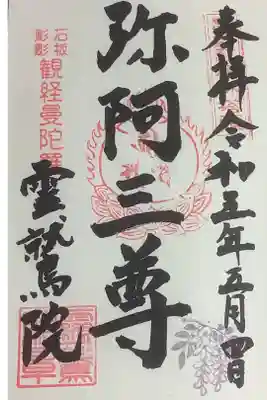 奉拝令和五年五月四日
弥阿三尊
石板
彫彫
観経曼陀羅
霊鷲院